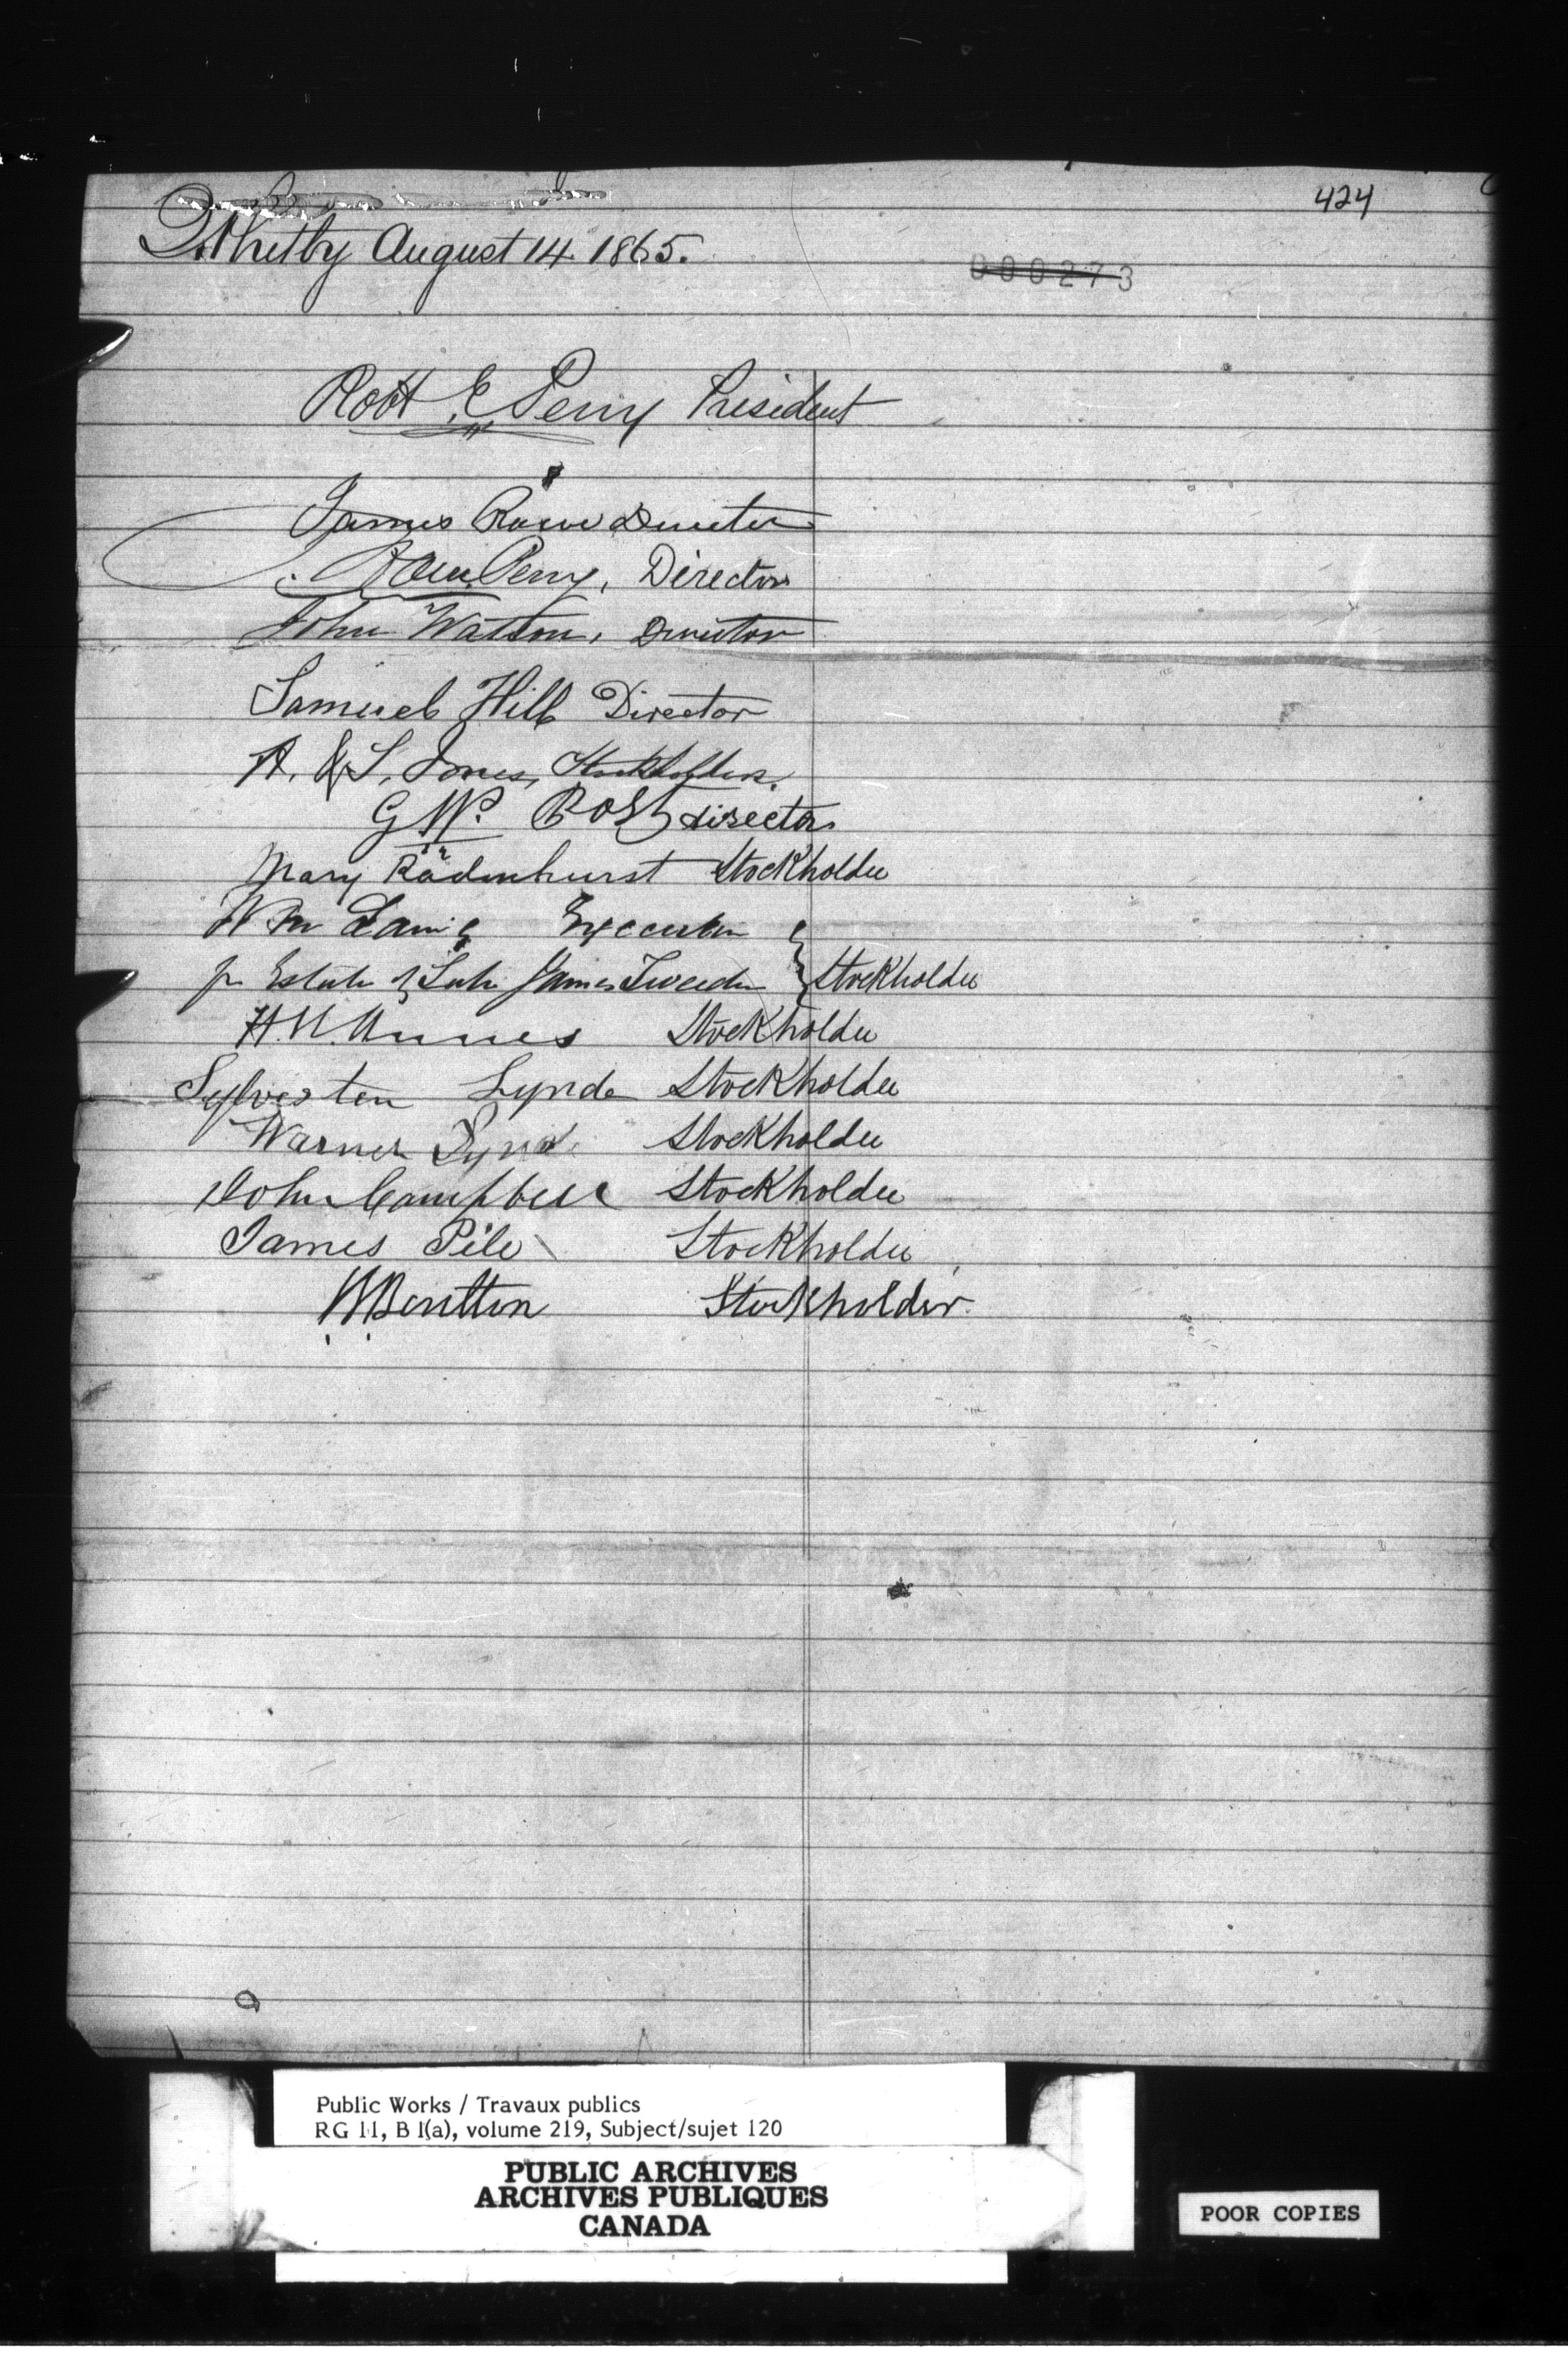 424
Whitby August 14. 1865.
000273
Robt E Perry President
James Rowe Director
Perry, Director
John Watson, Director
Samuel Hill Director
A. & S. Jones, Stockholders.
G W. Post director
Mary Radenhurst Stockholder
Wm Laing Executor
for Estate of Late James Tweedie } Stockholder
H. W. Annes Stockholder
Sylvester Lynde Stockholder
Warner Lynde Stockholder
John Campbell Stockholder
James Pile Stockholder
Stockholder.
Public Works / Travaux publics
RG 11, B 1(a), volume 219, Subject/sujet 120
PUBLIC ARCHIVES
ARCHIVES PUBLIQUES
CANADA
POOR COPIES